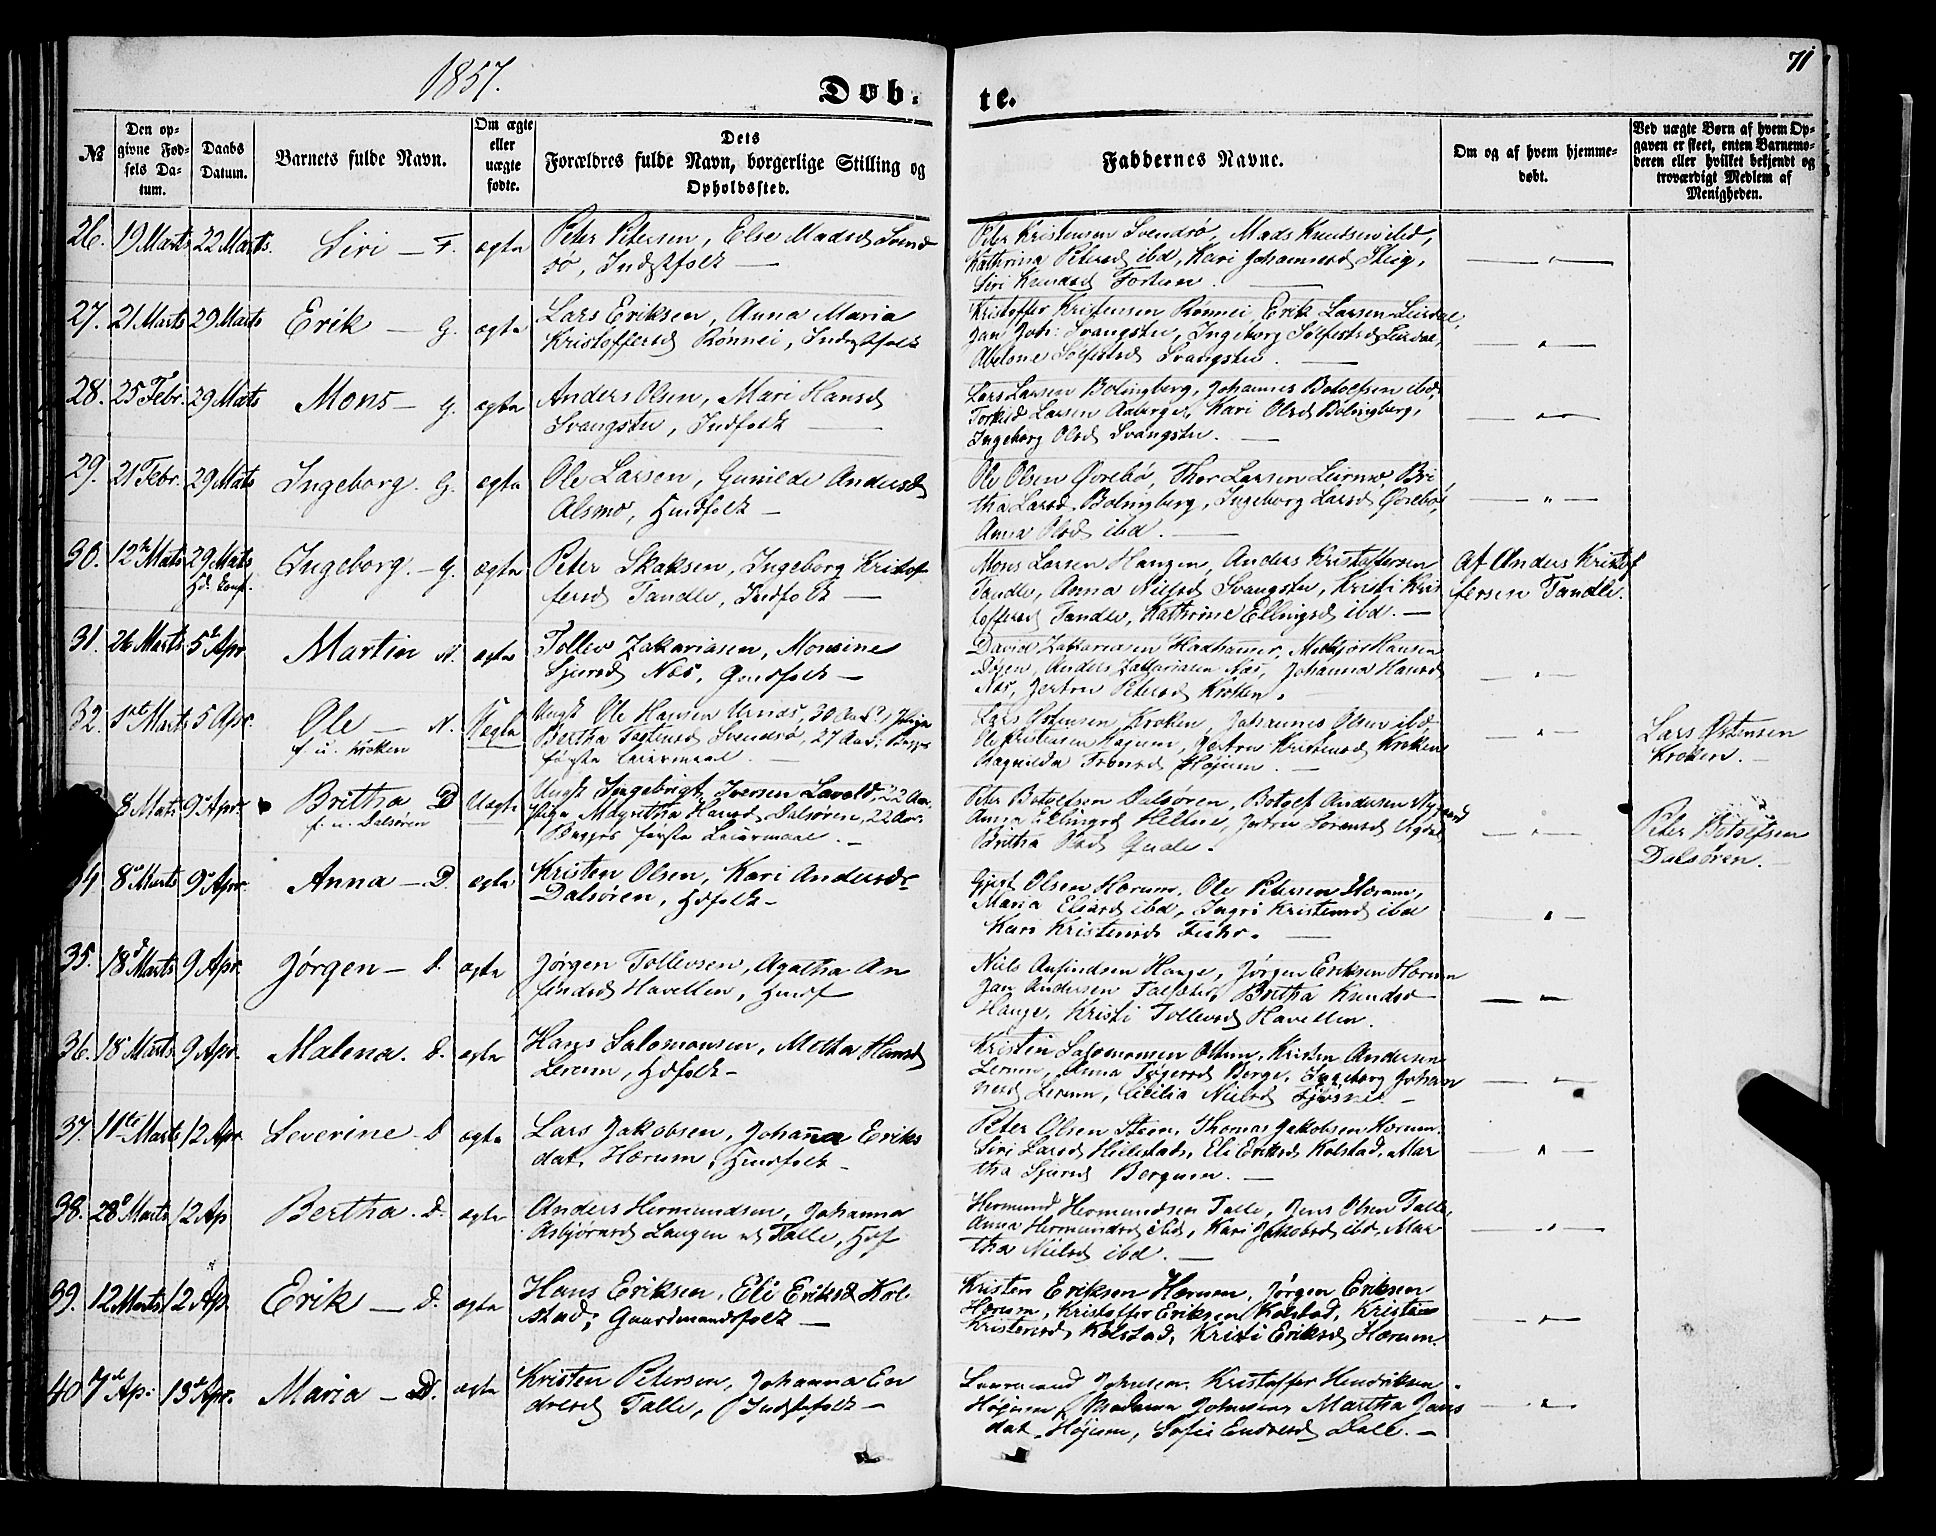 1857.
Døb-
te.
71
№
Den op-
givne Fød-
sels Da-
tum.
Daabs
Datum.
Barnets fulde Navn.
Om ægte
eller
uægte
fødte.
Dets
Forældres fulde Navn, borgerlige Stilling og
Opholdssted.
Faddernes Navne.
Om og af hvem hjemme-
døbt.
Ved uægte Børn af hvem Op-
gaven er skeet, enten Barnemo-
deren eller hvilket bekjendt og
troværdigt Medlem af
Menigheden.
26. 19 Marts 22 Marts. Siri — F. ægte
Peter Petersen, Else Madsd Svend
sø, Indstfolk —
Peter Kristensen Svendsø, Mads Knudsen ibd,
Kathrina Petersd ibd, Kari Johannesd
Siri Knudsd Fortun.
27. 21 Marts 29 Marts Erik — G. ægte
Lars Eriksen, Anna Maria
Kristoffersd Rønnei, Indstfolk
Kristoffer Kristensen Rønnei, Erik Larsen Leirdal,
Jan Joh: Svangstu, Ingeborg Sølfestsd Leirdal,
Abelone Sølfestsd Svangstu.
28. 25 Febr. 29 Mats Mons — G. ægte
Anders Olsen, Mari Hansd
Svangstu, Indfolk —
Lars Larsen Bolingberg, Johannes Botolfsen ibd,
Torkild Larsen Aaberge, Kari Olsd Bolingberg,
Ingeborg Olsd Svangstu. —
29. 21 Febr. 29 Mats Ingeborg. G. ægte
Ole Larsen, Gunilde Andersd
Alsmo, Husfolk —
Ole Olsen Qvrebø, Thor Larsen Leirmo, Bri
tha Larsd Bolingberg, Ingeborg Larsd
Anna Olsd ibd. —
30. 12te Mats 29 Mats Ingeborg. — G. ægte
Hd: Conf.
Peter Skaksen, Ingeborg Kristof
fersd Tandle, Indfolk —
Mons Larsen Haugen, Anders Kristoffersen
Tandle, Anna Nielsd Svangstu, Kristi Kris
toffersd Tandle, Kathrine Ellingsd ibd. —
Af Anders Kristof
fersen Tandle.
31. 26 Marts 5te Apr Martin N. ægte
Tollev Zakariasen, Monsine
Sjursd Næs, Gmdfolk —
David Zakariasen Hodhamer, Hansen
Anders Zakariasen Næs, Johanna Hansd
Næs, Jertru Petersd Kroken.
32. 1ste Marts 5 Apr. Ole — N. Uægte
f. u. Kroken
Ungk Ole Hansen Urnæs, 30 Aar, Piga
Bertha Svendsø, 27 Aar, Begges
første Leiermaal —
Lars Østensen Kroken, Johannes Olsen ibd
Ole Kristensen Høgum, Jertru Kristensd Kroken
Ragnilda Høium. —
Lars Østensen
Kroken.
8 Mats 9 Apr. Britha D Uægte
f. u. Dalsøren
Ungk Ingebrigt Iversen Lavold, 22 Aar,
Piga Magritha Hansd Dalsøren, 22 Aar.
Begges første Leiermaal. —
Peter Botolfsen Dalsøren, Botolf Andersen Nygaard
Anna Ellingsd Heltne, Jertru Sørensd
Britha Olsd Qvale.
Peter Botolfsen
Dalsøren. —
34 8 Marts 9 Apr. Anna — D. ægte
Kristen Olsen, Kari Andersdr
Dalsøren, Hdfolk —
Olsen Hærum, Ole Petersen Hærum,
Maria Eliasd ibd, Ingri Kristensd ibd
Kari Kristensd —
35. 18 Marts 9 Apr. Jørgen — D. ægte
Jørgen Tollevsen, Agatha An
findsd Havellen, Husf
Niels Anfindsen Hauge, Jørgen Eriksen Hærum
Jan Andersen, Britha Knudsd
Hauge, Kristi Tollevsd Havellen.
36. 18 Marts 9 Apr. Malena. D. ægte
Hans Salomonsen, Metha Hansd
Lerum, Hdfolk —
Kristen Salomonsen Ottum, Kristen Andersen
Lerum, Anna Berge, Ingeborg Johan
nesd Lerum, Cicilia Nielsd —
37. 11te Marts 12 Apr Severine — D ægte
Lars Jakobsen, Johanna Eriks
dat. Hærum, Husfolk —
Peter Olsen Steen, Thomas Jakobsen Hærum.
Siri Larsd Hillestad, Eli Eriksd Kolstad, Mar
tha Sjursd Bergum. —
38. 28 Marts 12 Ap Bertha. D. ægte
Anders Hermundsen, Johanna
Asbjørnsd Laugen u. Talle, Hdf
Hermund Hermundsen Talle, Jens Olsen Talle,
Anna Hermundsd ibd, Kari Jakobsd ibd, Mar
tha Nielsd ibd. —
39. 12 Marts 12 Ap Erik — D. ægte
Hans Eriksen, Eli Eriksd Kol
stad; Gaardmandsfolk —
Kristen Eriksen Hærum, Jørgen Eriksen
Hærum, Kristoffer Eriksen Kolstad, Kristine
Kristensd Kolstad, Kristi Eriksd Hærum.
40 7de Ap: 13de Apr. Maria — D. ægte
Kristen Petersen, Johanna En
dresd Talle, Indstfolk —
Johnsen, Kristoffer Hendriksen
Høium, Madame Johnsens Martha Jans
dat. Høium, Sofie Endresd Dale. —